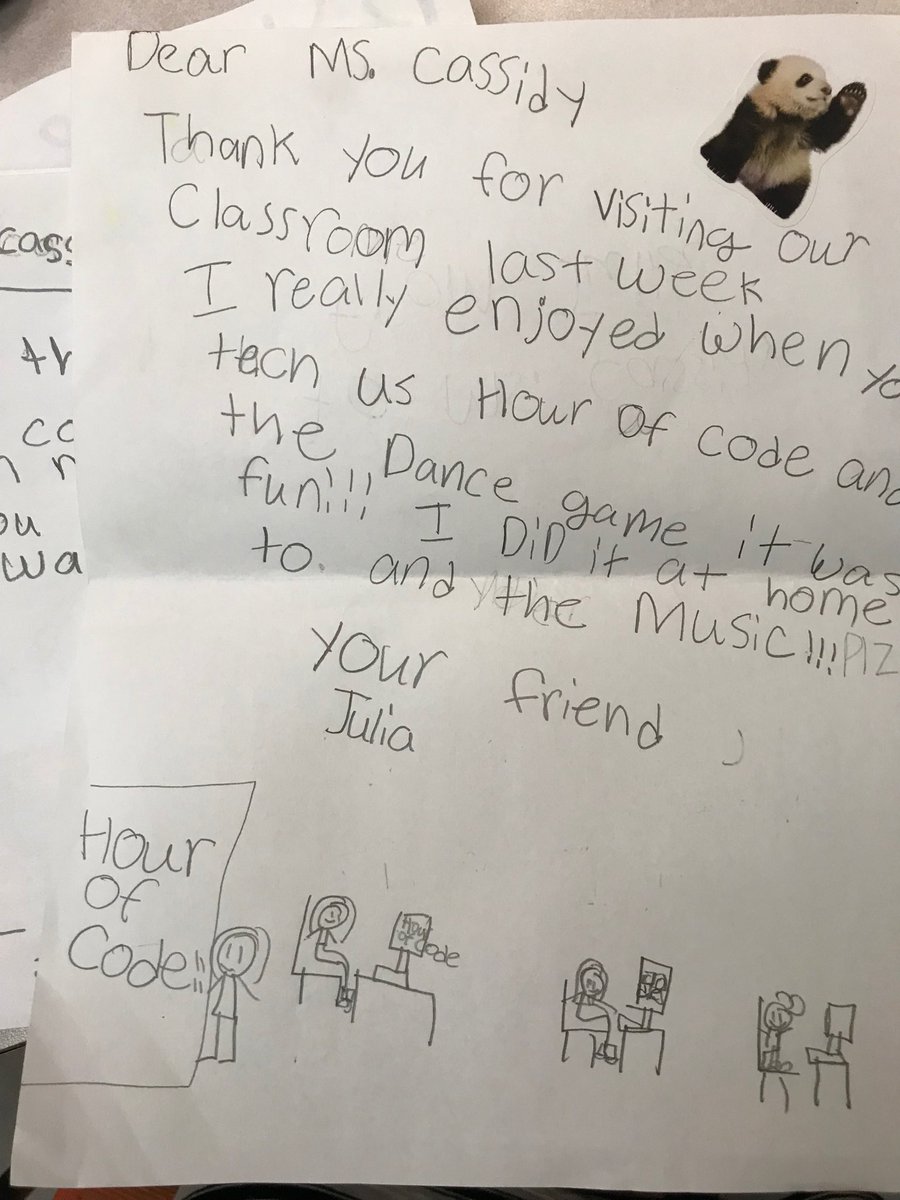 Dear Ms. Cassidy
Thank you for visiting our
Classroom last week
I really enjoyed when yo
tech us Hour Of code and
the Dance game it was
fun!!! I DiD it at home
to. and the Music!!! Plz
your friend,
Julia
Hour
Of
Code!!
Hour
of Code
cass
th
cc
n r
ou
wa